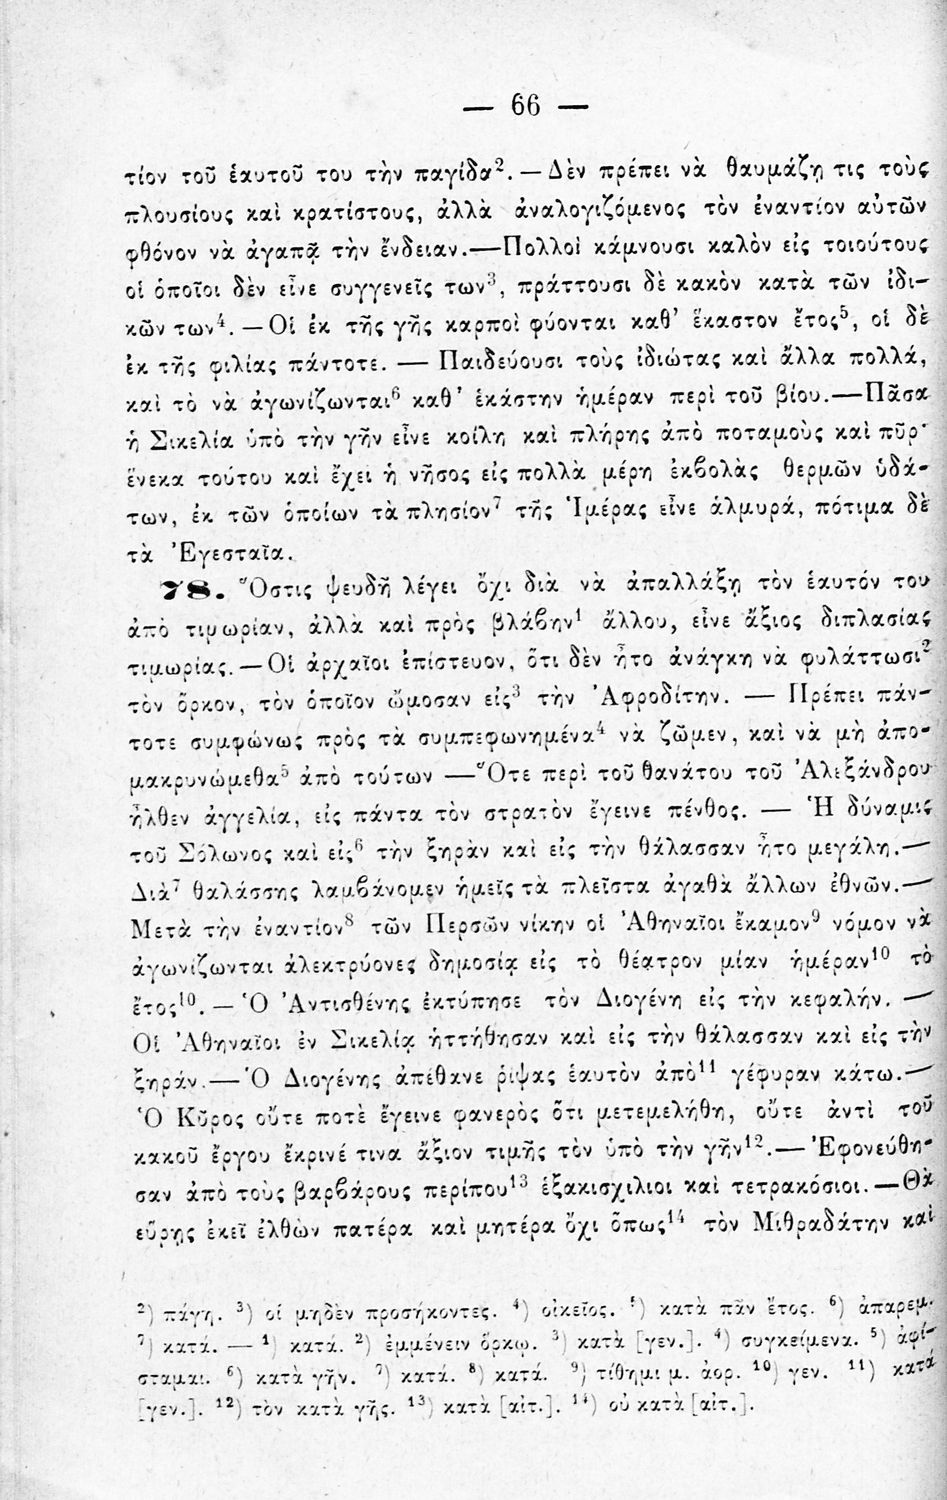 — 66 —
τίον τοῦ ἑαυτοῦ του τὴν παγίδα². — Δὲν πρέπει νὰ θαυμάζῃ τις τοὺς
πλουσίους καὶ κρατίστους, ἀλλὰ ἀναλογιζόμενος τὸν ἐναντίον αὐτῶν
φθόνον νὰ ἀγαπᾷ τὴν ἔνδειαν.—Πολλοὶ κάμνουσι καλὸν εἰς τοιούτους
οἱ ὁποῖοι δὲν εἶνε συγγενεῖς των³, πράττουσι δὲ κακὸν κατὰ τῶν ἰδι-
κῶν των⁴. — Οἱ ἐκ τῆς γῆς καρποὶ φύονται καθ' ἕκαστον ἔτος⁵, οἱ δὲ
ἐκ τῆς φιλίας πάντοτε. — Παιδεύουσι τοὺς ἰδιώτας καὶ ἄλλα πολλά,
καὶ τὸ νὰ ἀγωνίζωνται⁶ καθ' ἑκάστην ἡμέραν περὶ τοῦ βίου.—Πᾶσα
ἡ Σικελία ὑπὸ τὴν γῆν εἶνε κοίλη καὶ πλήρης ἀπὸ ποταμοὺς καὶ πῦρ·
ἕνεκα τούτου καὶ ἔχει ἡ νῆσος εἰς πολλὰ μέρη ἐκβολὰς θερμῶν ὑδά-
των, ἐκ τῶν ὁποίων τὰ πλησίον⁷ τῆς Ἱμέρας εἶνε ἁλμυρά, πότιμα δὲ
τὰ Ἐγεσταῖα.
78. Ὅστις ψευδῆ λέγει ὄχι διὰ νὰ ἀπαλλάξῃ τὸν ἑαυτόν του
ἀπὸ τιμωρίαν, ἀλλὰ καὶ πρὸς βλάβην¹ ἄλλου, εἶνε ἄξιος διπλασίας
τιμωρίας. — Οἱ ἀρχαῖοι ἐπίστευον, ὅτι δὲν ἦτο ἀνάγκη νὰ φυλάττωσι²
τὸν ὅρκον, τὸν ὁποῖον ὤμοσαν εἰς³ τὴν Ἀφροδίτην. — Πρέπει πάν-
τοτε συμφώνως πρὸς τὰ συμπεφωνημένα⁴ νὰ ζῶμεν, καὶ νὰ μὴ ἀπο-
μακρυνώμεθα⁵ ἀπὸ τούτων —Ὅτε περὶ τοῦ θανάτου τοῦ Ἀλεξάνδρου
ἦλθεν ἀγγελία, εἰς πάντα τὸν στρατὸν ἔγεινε πένθος. — Ἡ δύναμις
τοῦ Σόλωνος καὶ εἰς⁶ τὴν ξηρὰν καὶ εἰς τὴν θάλασσαν ἦτο μεγάλη.—
Διὰ⁷ θαλάσσης λαμβάνομεν ἡμεῖς τὰ πλεῖστα ἀγαθὰ ἄλλων ἐθνῶν.—
Μετὰ τὴν ἐναντίον⁸ τῶν Περσῶν νίκην οἱ Ἀθηναῖοι ἔκαμον⁹ νόμον νὰ
ἀγωνίζωνται ἀλεκτρύονες δημοσίᾳ εἰς τὸ θέατρον μίαν ἡμέραν¹⁰ τὸ
ἔτος¹⁰. — Ὁ Ἀντισθένης ἐκτύπησε τὸν Διογένη εἰς τὴν κεφαλήν. —
Οἱ Ἀθηναῖοι ἐν Σικελίᾳ ἡττήθησαν καὶ εἰς τὴν θάλασσαν καὶ εἰς τὴν
ξηράν.—Ὁ Διογένης ἀπέθανε ῥίψας ἑαυτὸν ἀπὸ¹¹ γέφυραν κάτω.—
Ὁ Κῦρος οὔτε ποτὲ ἔγεινε φανερὸς ὅτι μετεμελήθη, οὔτε ἀντὶ τοῦ
κακοῦ ἔργου ἔκρινέ τινα ἄξιον τιμῆς τὸν ὑπὸ τὴν γῆν¹².— Ἐφονεύθη-
σαν ἀπὸ τοὺς βαρβάρους περίπου¹³ ἑξακισχιλιοι καὶ τετρακόσιοι.—Θὰ
εὕρῃς ἐκεῖ ἐλθὼν πατέρα καὶ μητέρα ὄχι ὅπως¹⁴ τὸν Μιθραδάτην καὶ
²) πάγη. ³) οἱ μηδὲν προσήκοντες. ⁴) οἰκεῖος. ⁵) κατὰ πᾶν ἔτος. ⁶) ἀπαρεμ.
⁷) κατά. — ¹) κατά. ²) ἐμμένειν ὅρκῳ. ³) κατὰ [γεν.]. ⁴) συγκείμενα. ⁵) ἀφί-
σταμαι. ⁶) κατὰ γῆν. ⁷) κατά. ⁸) κατά. ⁹) τίθημι μ. ἀορ. ¹⁰) γεν. ¹¹) κατὰ
[γεν.]. ¹²) τὸν κατὰ γῆς. ¹³) κατὰ [αἰτ.]. ¹⁴) οὐ κατὰ [αἰτ.].